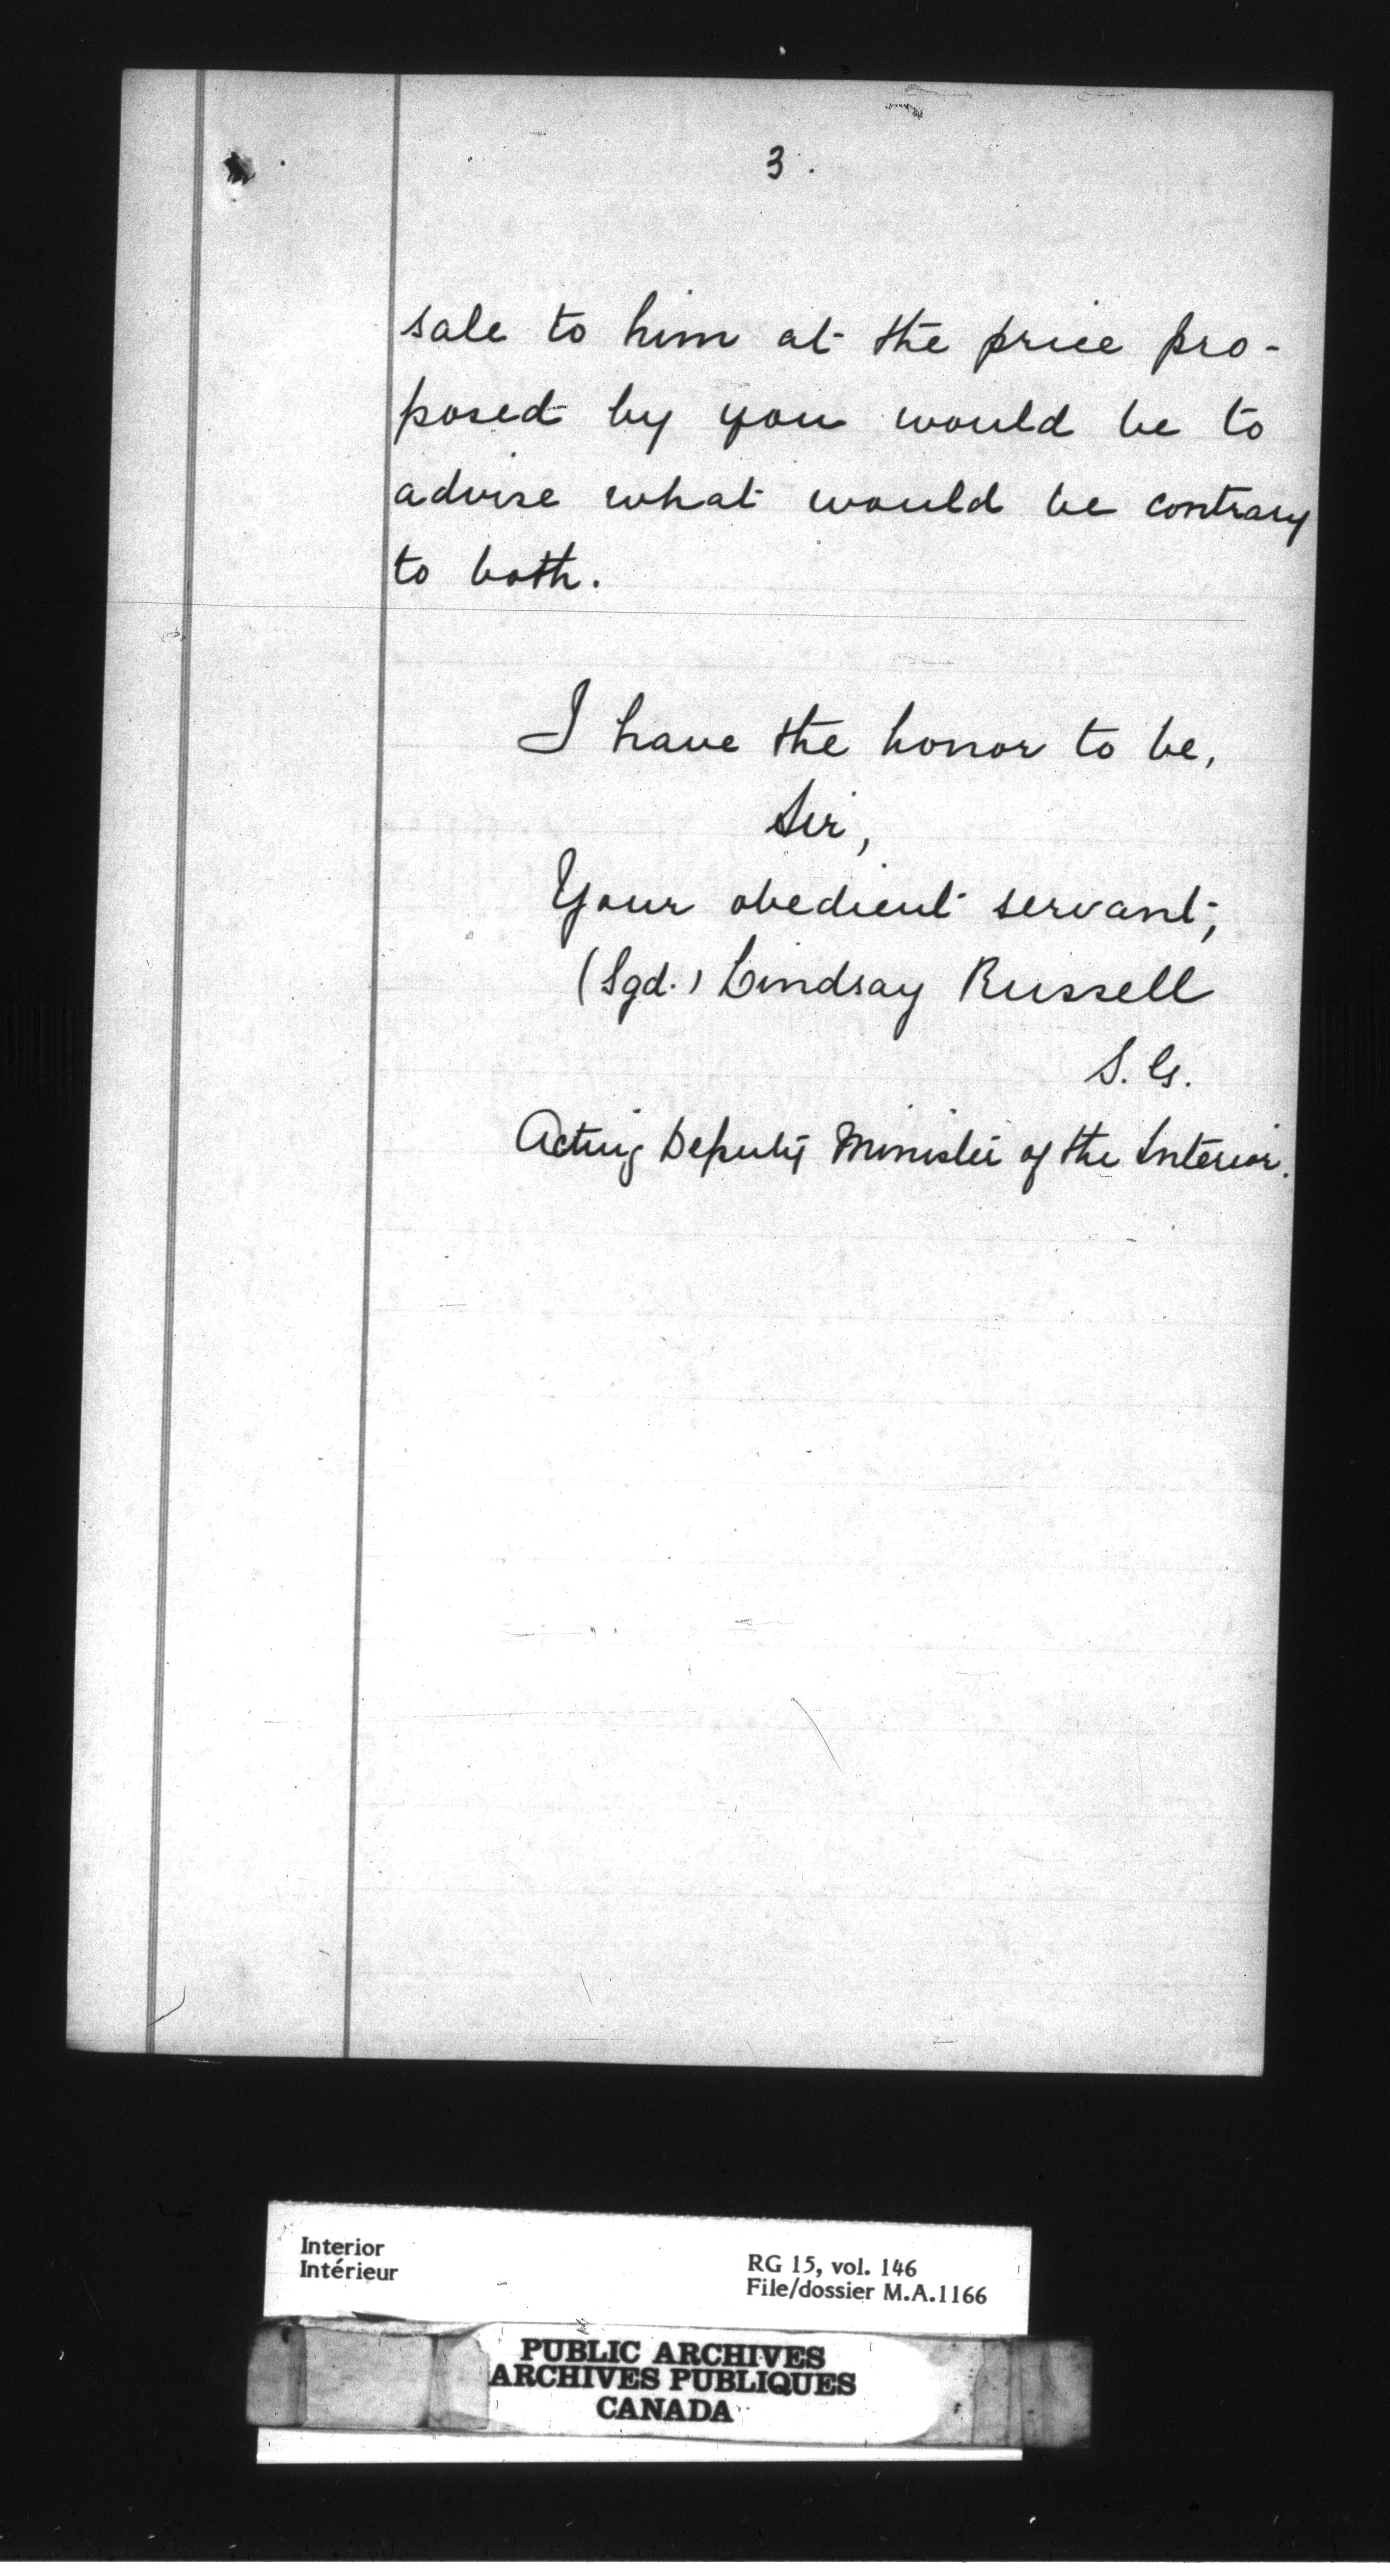 3.
sale to him at the price pro-
posed by you would be to
advise what would be contrary
to both.
I have the honor to be,
Sir,
Your obedient servant,
(Sgd.) Lindsay Russell
S. G.
Acting Deputy Minister of the Interior.
Interior
Intérieur
RG 15, vol. 146
File/dossier M.A.1166
PUBLIC ARCHIVES
ARCHIVES PUBLIQUES
CANADA